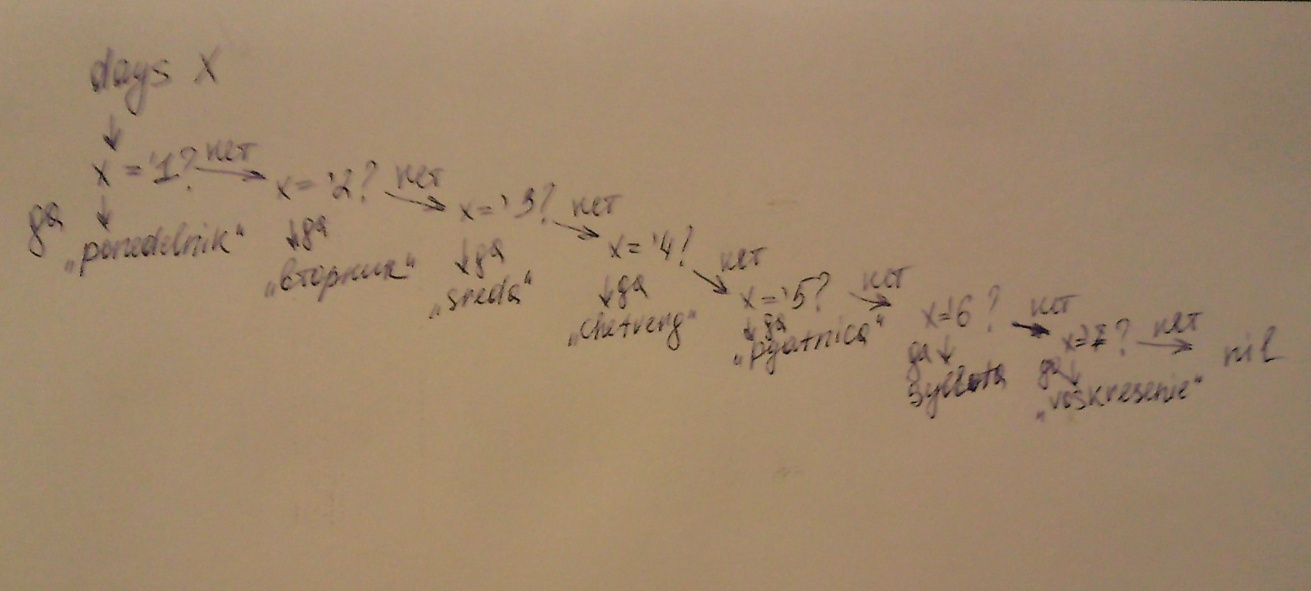 days X
x = '1? нет
да
„ponedelnik“
x = '2? нет
да
„вторник“
x = '3? нет
да
„sreda“
x = '4? нет
да
„chetverg“
x = '5? нет
да
„pyatnica“
x='6? нет
да
x=7? нет
да
„voskresenie“
nil